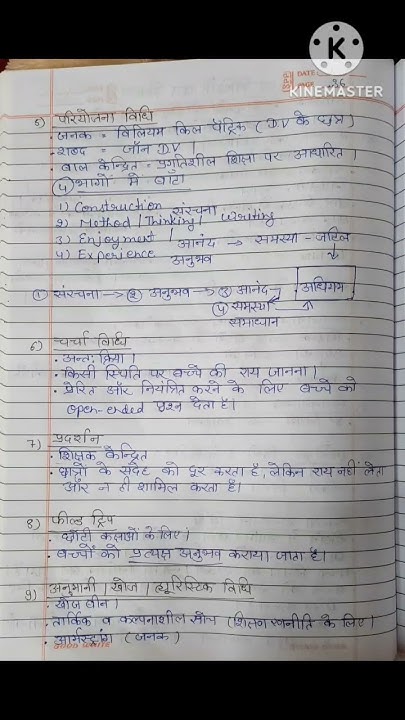 K
KINEMASTER
DATE
5) परियोजना विधि
· जनक = विलियम किल पैट्रिक (D.V के छात्र)
· शब्द = जॉन D.V ।
· बाल केन्द्रित = प्रगतिशील शिक्षा पर आधारित ।
④ भागों में बाँटा
1) Construction संरचना
2) Method / Thinking / writing
3) Enjoyment / आनंद → समस्या - जटिल
4) Experience अनुभव
① संरचना → ② अनुभव → ③ आनंद → अधिगम
④ समस्या
समाधान
6) चर्चा विधि
· अन्तः क्रिया ।
· किसी स्थिति पर बच्चे की राय जानना ।
· प्रेरित और नियंत्रित करने के लिए बच्चे को
open-ended प्रश्न देता है।
7) प्रदर्शन
· शिक्षक केन्द्रित
· छात्रों के संदेह को दूर करता है, लेकिन राय नहीं लेता
और न ही शामिल करता है।
8) फील्ड ट्रिप
· छोटी कक्षाओं के लिए ।
· बच्चों को प्रत्यक्ष अनुभव कराया जाता है।
9) अनुमानी / खोज / ह्यूरिस्टिक विधि
· खोजबीन ।
· तार्किक व कल्पनाशील सोच (शिक्षण रणनीति के लिए)
· आर्मस्ट्रांग (जनक)